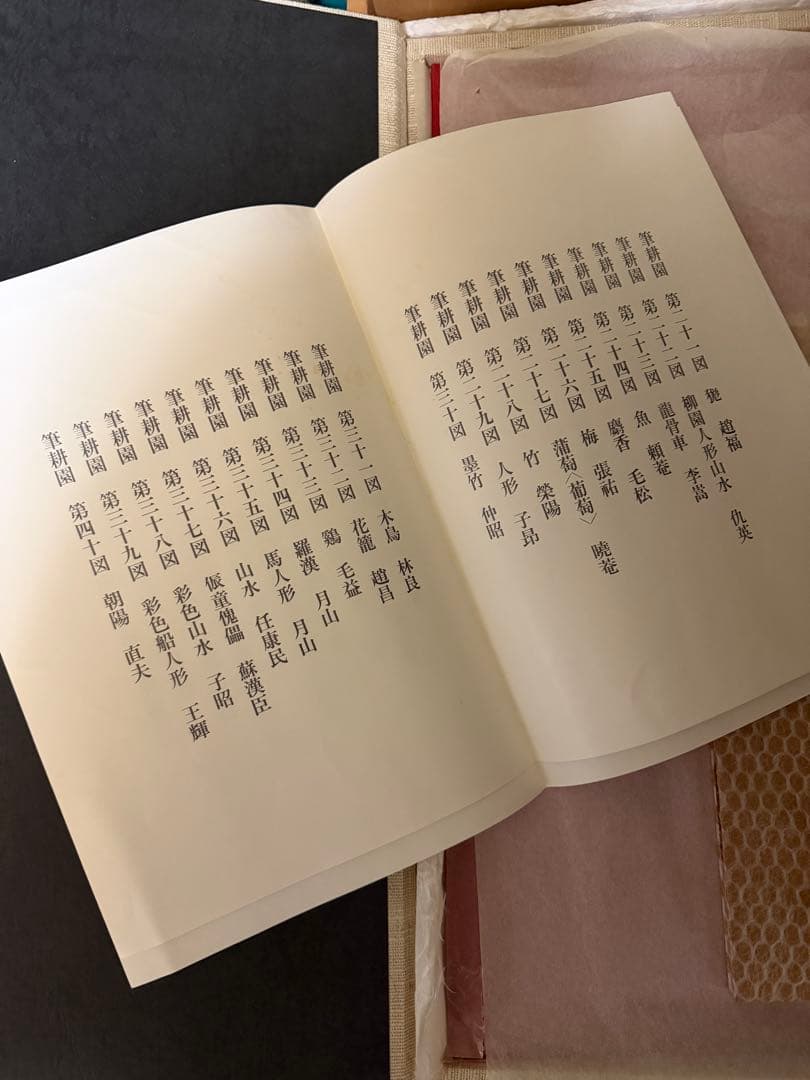 筆耕園 第二十一図 㹨 趙福
筆耕園 第二十二図 柳園人形山水 仇英
筆耕園 第二十三図 龍骨車 李嵩
筆耕園 第二十四図 魚 頼菴
筆耕園 第二十五図 麝香 毛松
筆耕園 第二十六図 梅 張祐
筆耕園 第二十七図 蒲萄〈葡萄〉 曉菴
筆耕園 第二十八図 竹 榮陽
筆耕園 第二十九図 人形 子昂
筆耕園 第三十図 墨竹 仲昭
筆耕園 第三十一図 木鳥 林良
筆耕園 第三十二図 花籠 趙昌
筆耕園 第三十三図 鶏 毛益
筆耕園 第三十四図 羅漢 月山
筆耕園 第三十五図 馬人形 月山
筆耕園 第三十六図 山水 任康民
筆耕園 第三十七図 侲童傀儡 蘇漢臣
筆耕園 第三十八図 彩色山水 子昭
筆耕園 第三十九図 彩色船人形 王輝
筆耕園 第四十図 朝陽 直夫